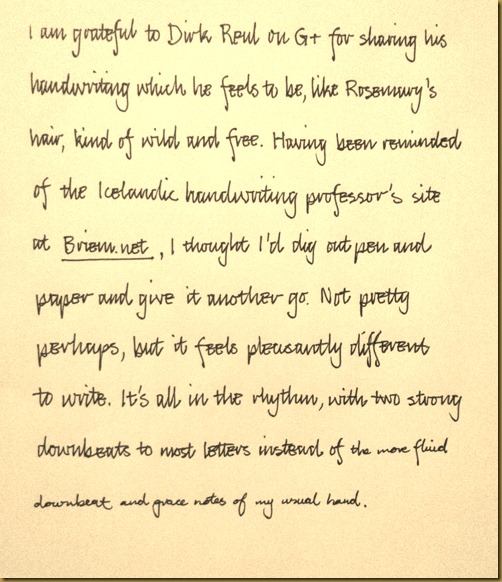 I am grateful to Dirk Reul on G+ for sharing his
handwriting which he feels to be, like Rosemary's
hair, kind of wild and free. Having been reminded
of the Icelandic handwriting professor's site
at Briem.net, I thought I'd dig out pen and
paper and give it another go. Not pretty
perhaps, but it feels pleasantly different
to write. It's all in the rhythm, with two strong
downbeats to most letters instead of the more fluid
downbeat and grace notes of my usual hand.